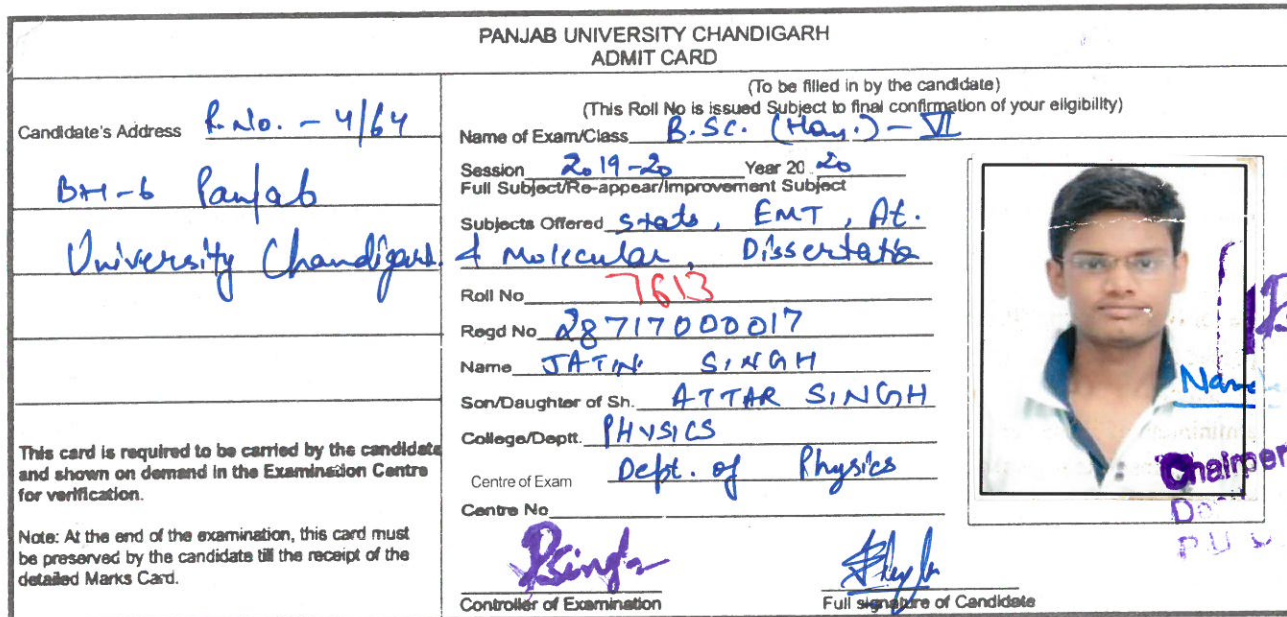 PANJAB UNIVERSITY CHANDIGARH
ADMIT CARD
Candidate's Address R.No. - 4/64
BH-6 Panjab
University Chandigarh.
This card is required to be carried by the candidate
and shown on demand in the Examination Centre
for verification.
Note: At the end of the examination, this card must
be preserved by the candidate till the receipt of the
detailed Marks Card.
(To be filled in by the candidate)
(This Roll No is issued Subject to final confirmation of your eligibility)
Name of Exam/Class B.SC. (Hon.) - VI
Session 2019-20 Year 20 20
Full Subject/Re-appear/Improvement Subject
Subjects Offered Stats, EMT, At.
& Molecular, Dissertatio
Roll No 7613
Regd No 28717000017
Name JATIN SINGH
Son/Daughter of Sh. ATTAR SINGH
College/Deptt. PHYSICS
Centre of Exam Dept. of Physics
Centre No
Controller of Examination
Full signature of Candidate
Name
Chairper
P U